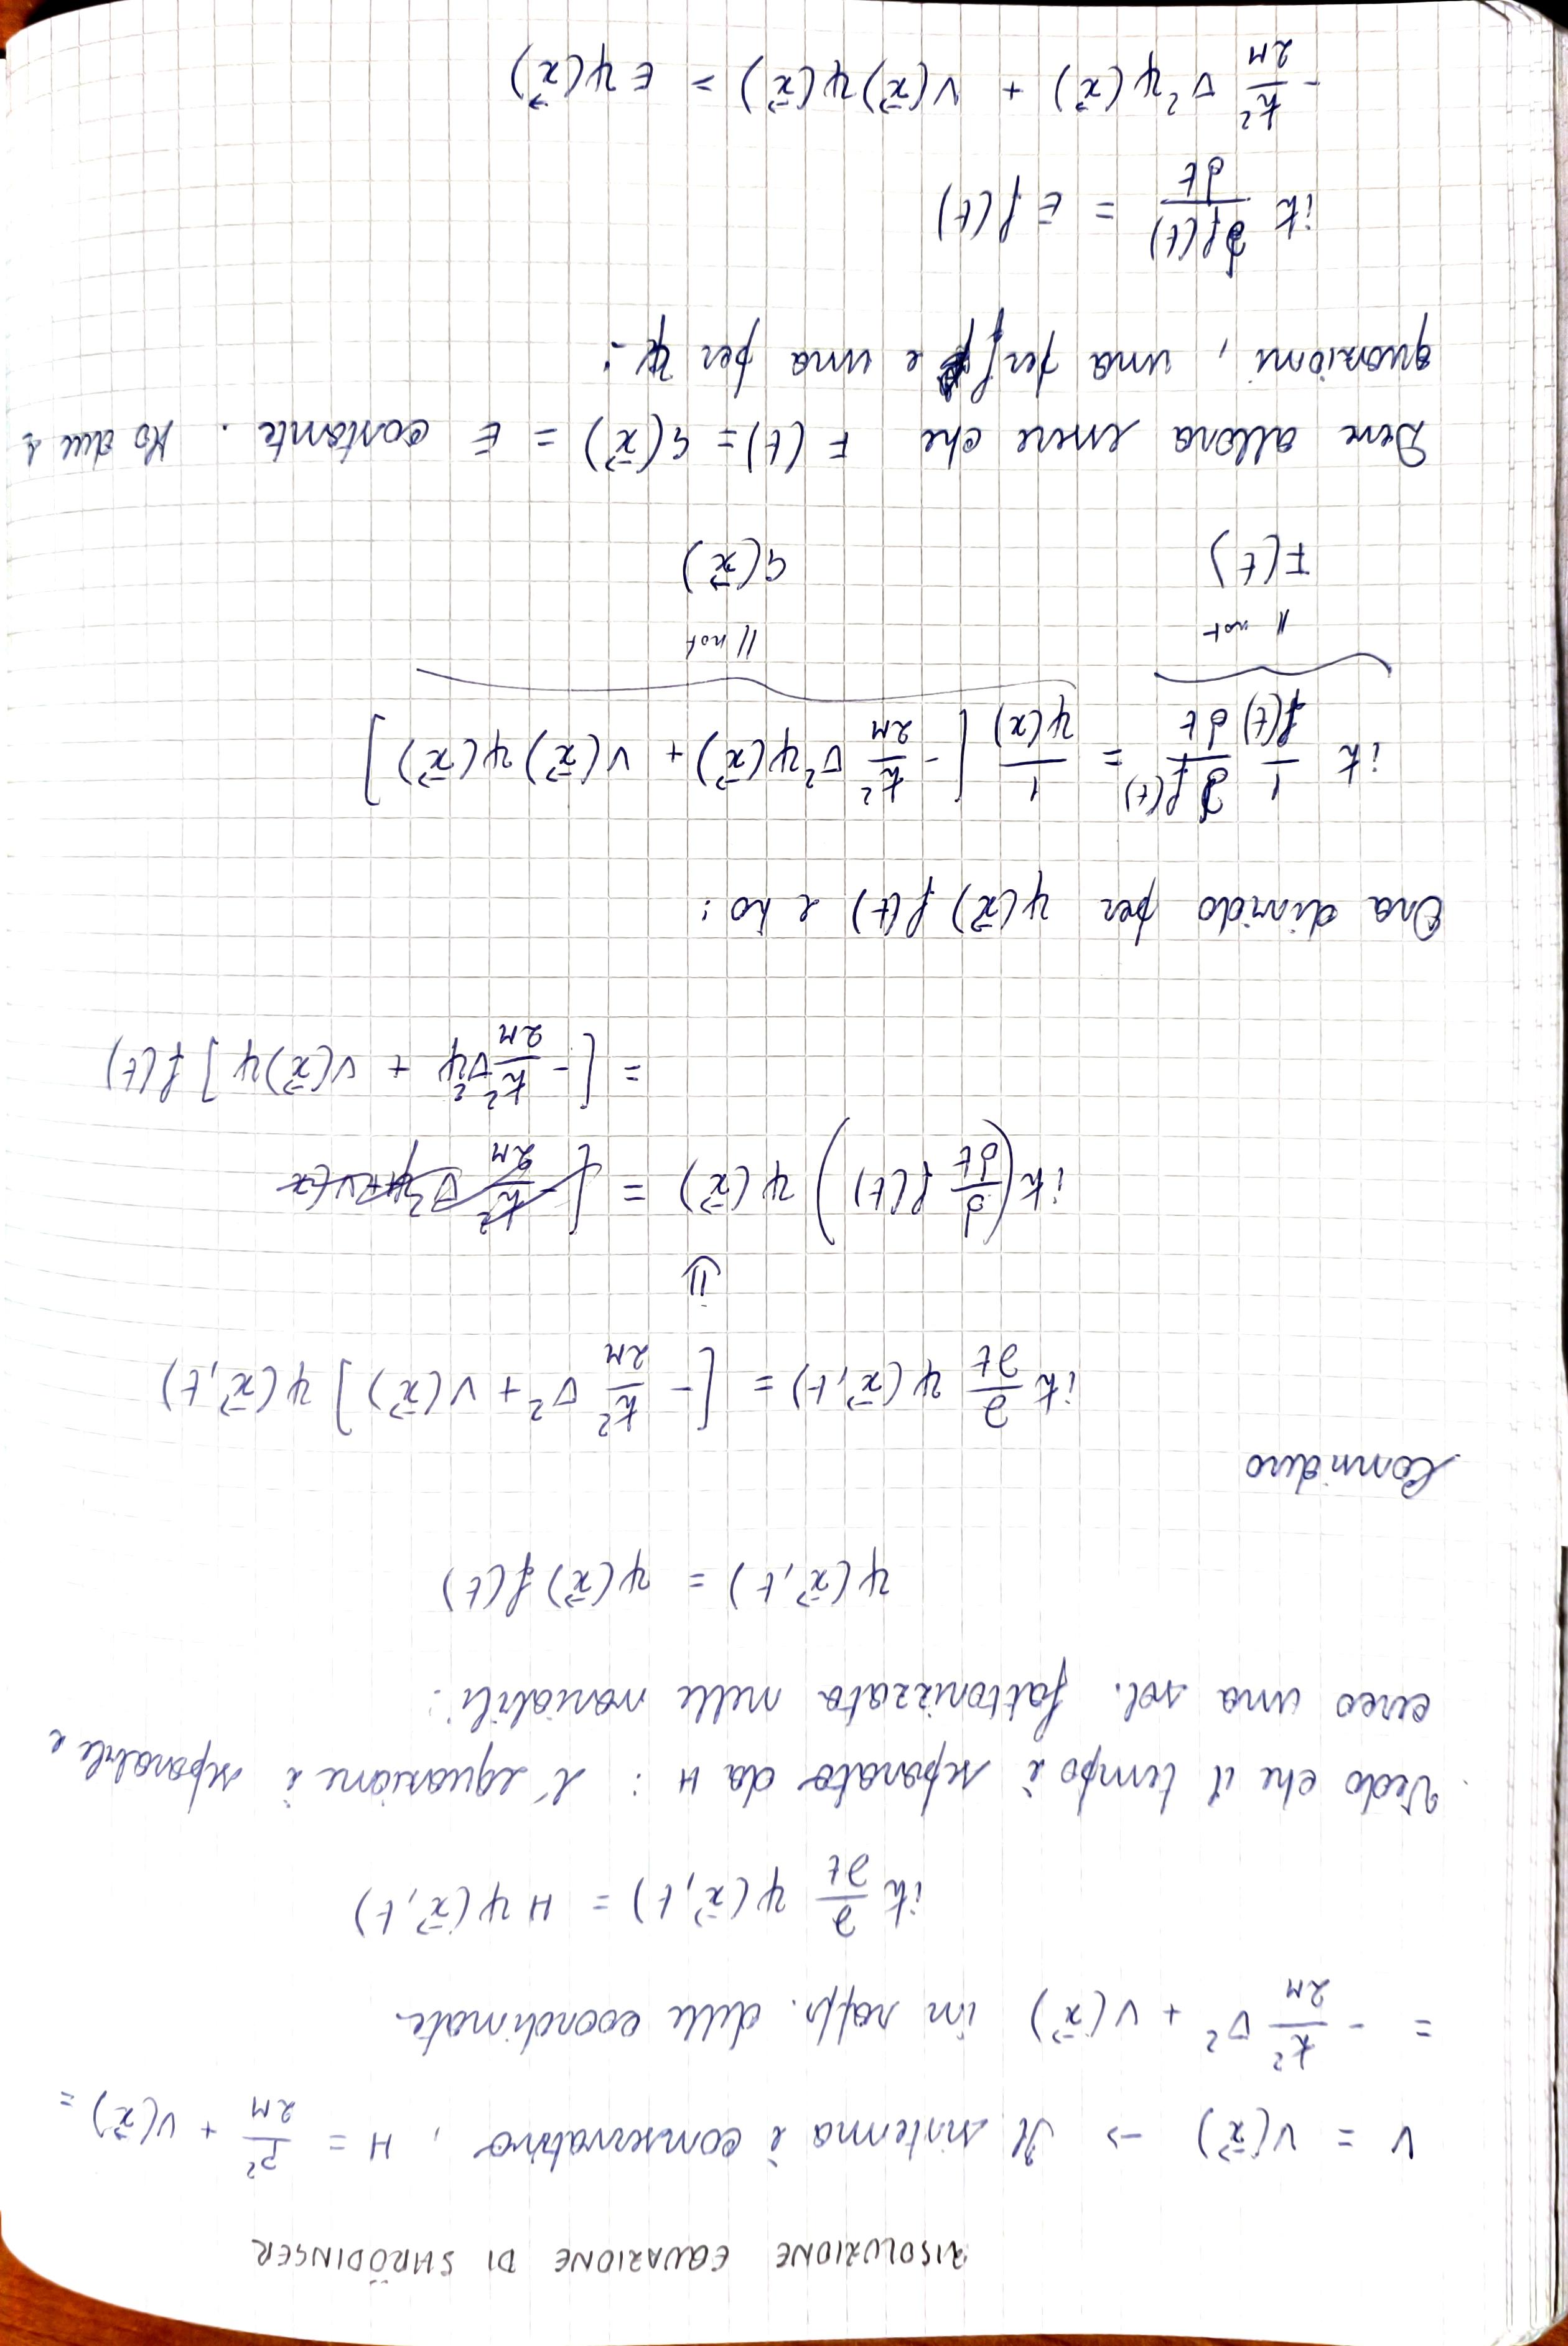 RISOLUZIONE EQUAZIONE DI SHRÖDINGER
V = V(x⃗) → Il sistema è conservativo, H = P²/2M + V(x⃗) =
= - ħ²/2M ∇² + V(x⃗) in rapp. delle coordinate
iħ ∂/∂t ψ(x⃗,t) = H ψ(x⃗,t)
Vedo che il tempo è separato da H : l'equazione è separabile e
cerco una sol. fattorizzata nelle variabili:
ψ(x⃗,t) = ψ(x⃗) f(t)
Considero
iħ ∂/∂t ψ(x⃗,t) = [- ħ²/2M ∇² + V(x⃗)] ψ(x⃗,t)
⇓
iħ (∂/∂t f(t)) ψ(x⃗) =
= [- ħ²/2M ∇²ψ + V(x⃗)ψ] f(t)
Ora divido per ψ(x⃗) f(t) e ho:
iħ 1/f(t) ∂f(t)/∂t = 1/ψ(x) [- ħ²/2M ∇²ψ(x⃗) + V(x⃗)ψ(x⃗)]
|| not || not
F(t) G(x⃗)
Deve allora essere che F(t) = G(x⃗) = E costante. Ho due e
quazioni, una per f e una per ψ:
iħ ∂f(t)/∂t = E f(t)
- ħ²/2M ∇²ψ(x⃗) + V(x⃗)ψ(x⃗) = E ψ(x⃗)